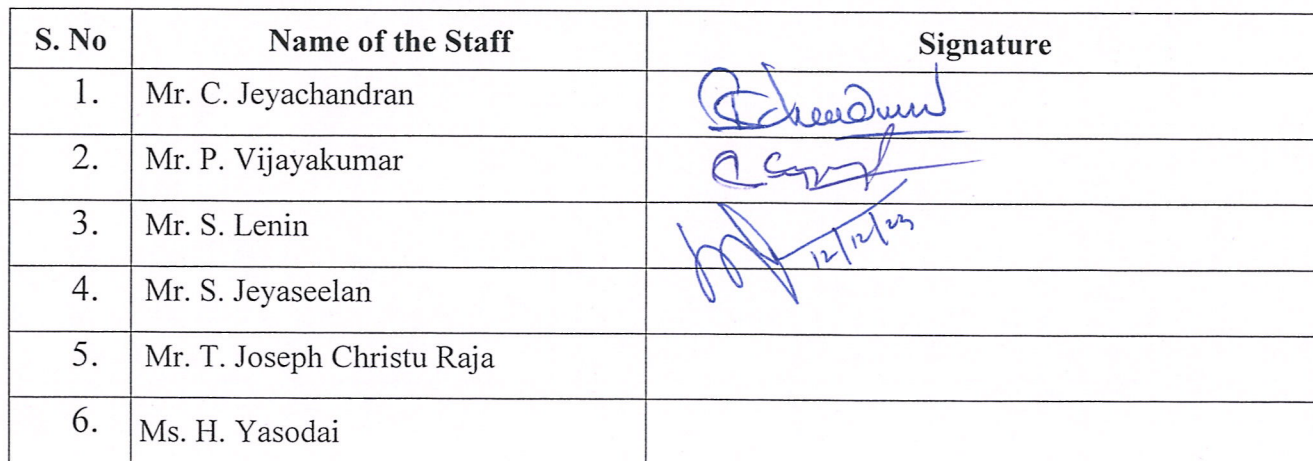 S. No Name of the Staff Signature
1. Mr. C. Jeyachandran
2. Mr. P. Vijayakumar
3. Mr. S. Lenin 12/12/23
4. Mr. S. Jeyaseelan
5. Mr. T. Joseph Christu Raja
6. Ms. H. Yasodai